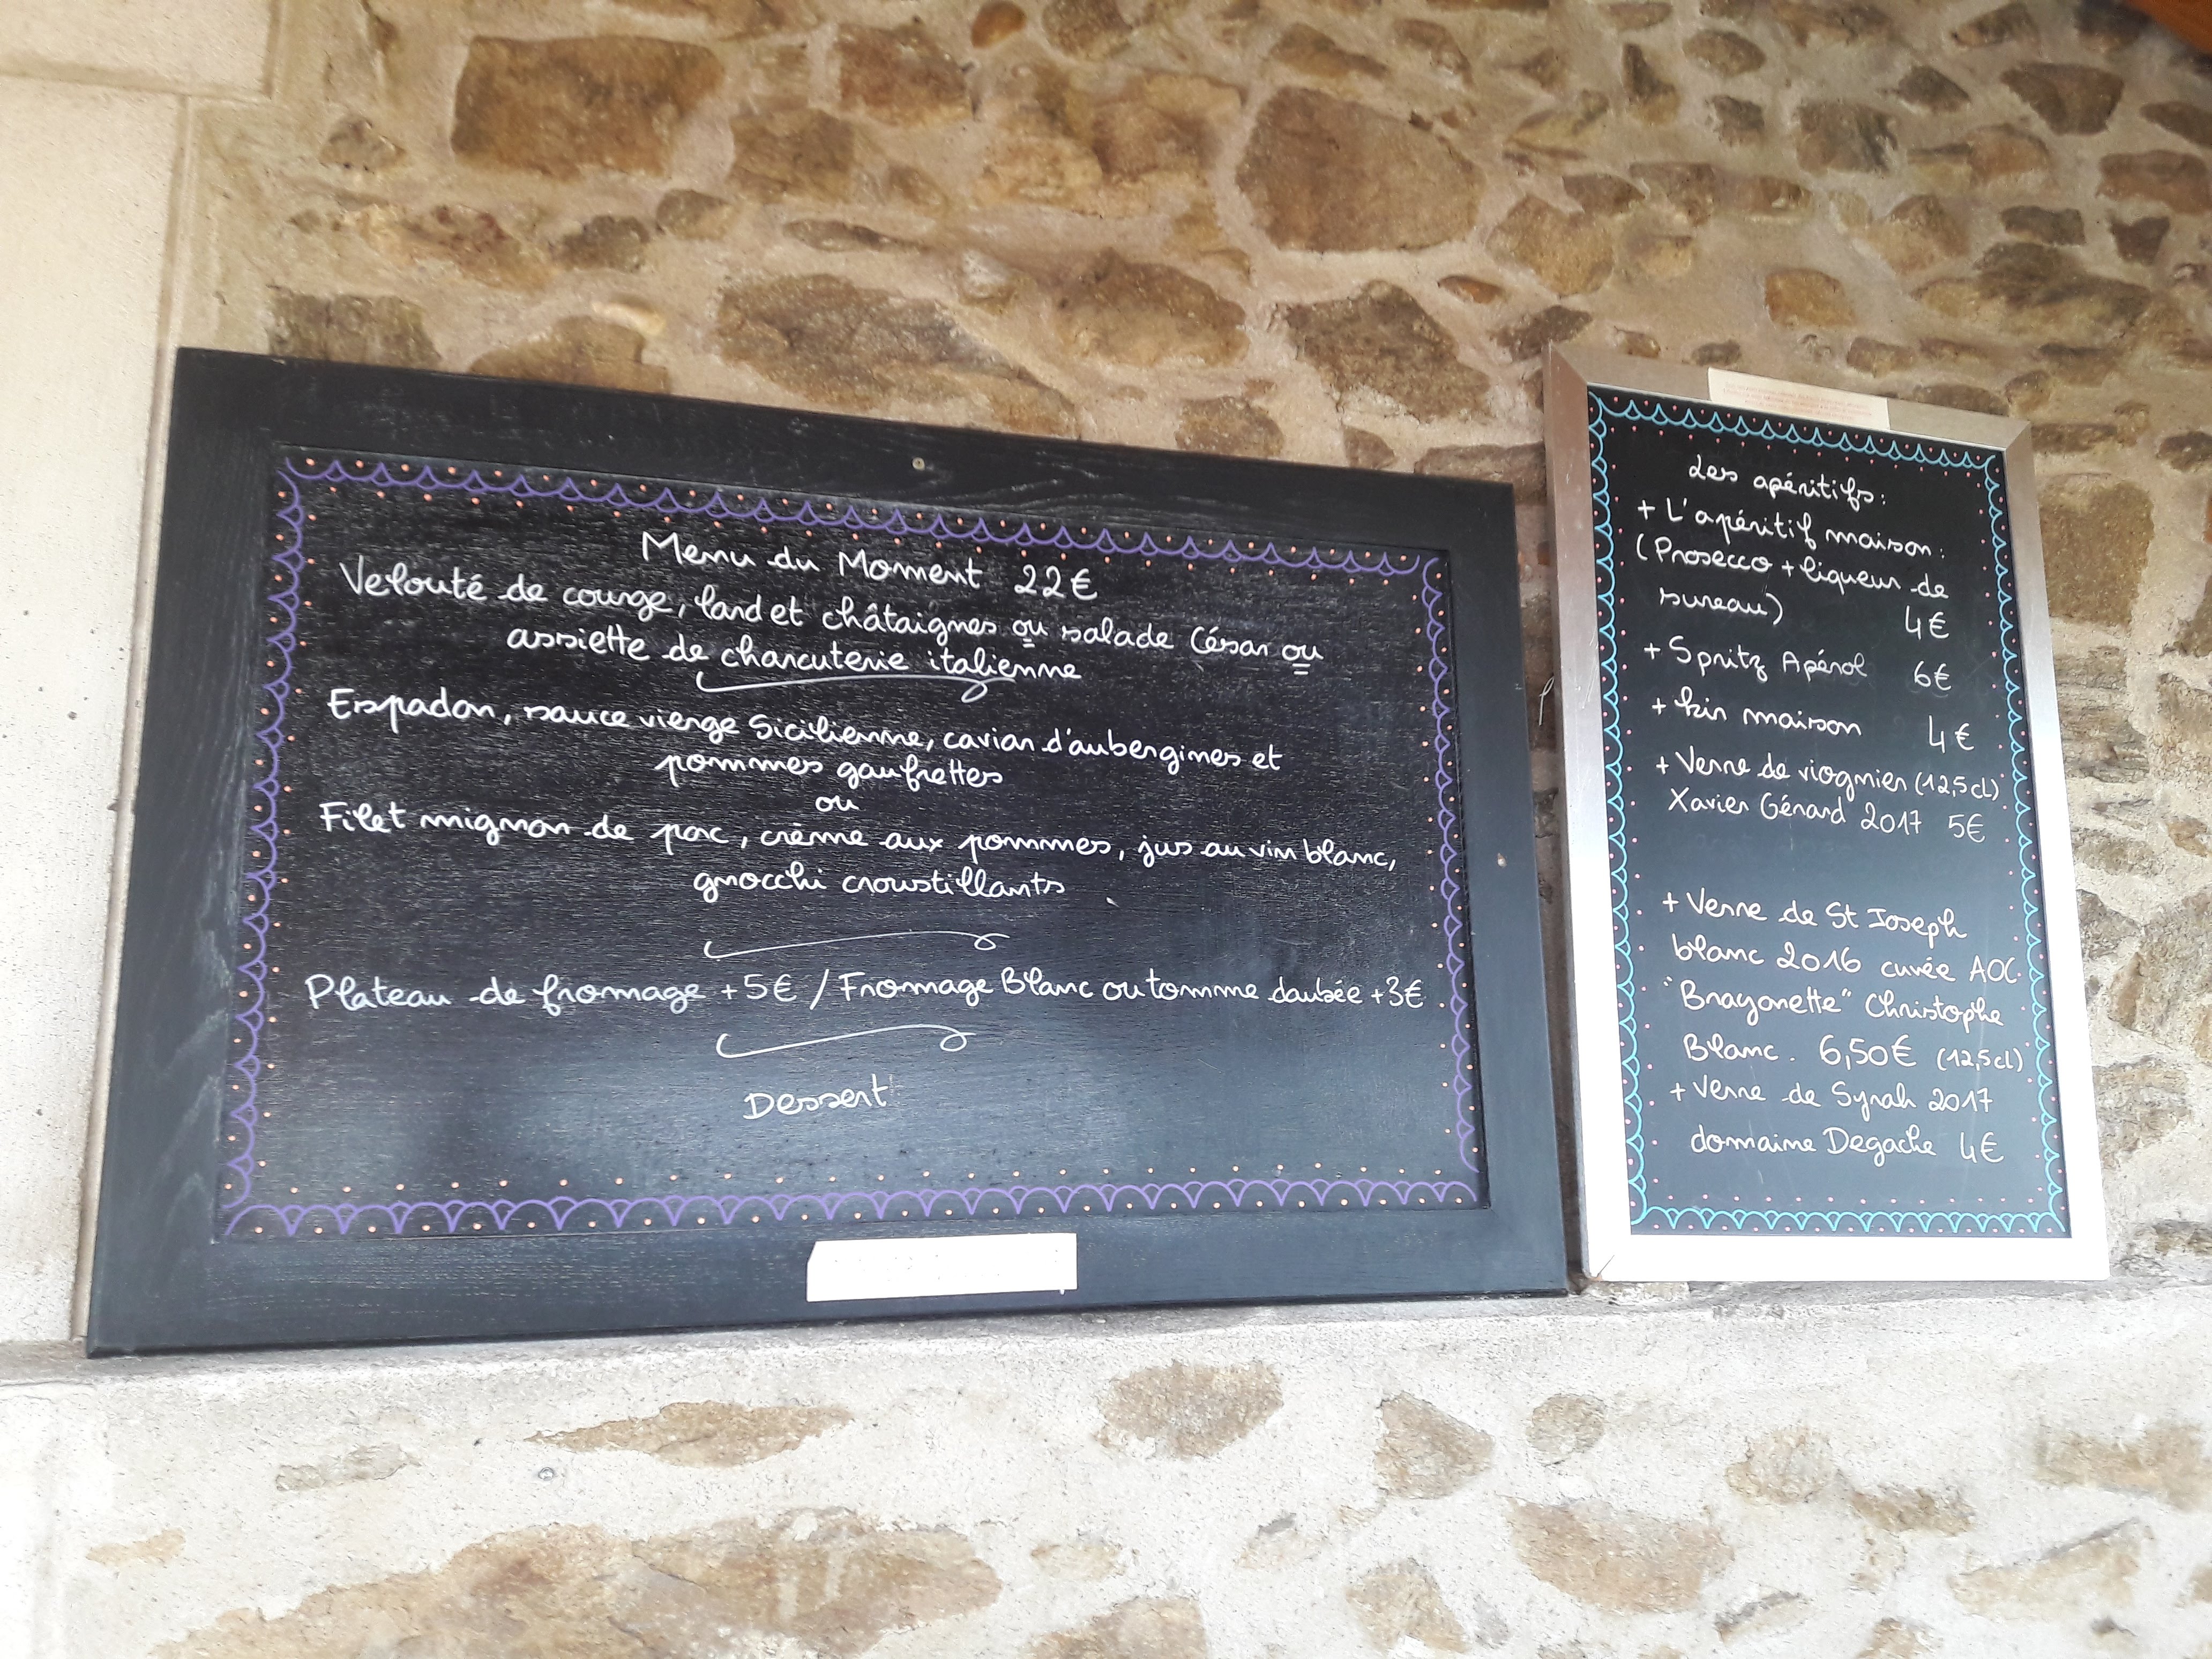 Menu du Moment 22€
Velouté de courge, lard et châtaignes ou salade César ou
assiette de charcuterie italienne
Espadon, sauce vierge Sicilienne, caviar d'aubergines et
pommes gaufrettes
ou
Filet mignon de porc, crème aux pommes, jus au vin blanc,
gnocchi croustillants
Plateau de fromage +5€ / Fromage Blanc ou tomme daubée +3€
Dessert
Les apéritifs:
+ L'apéritif maison:
(Prosecco + liqueur de
sureau) 4€
+ Spritz Apérol 6€
+ kir maison 4€
+ Verre de viognier (12,5cl)
Xavier Gérard 2017 5€
+ Verre de St Joseph
blanc 2016 cuvée AOC
"Brayonette" Christophe
Blanc. 6,50€ (12,5cl)
+ Verre de Syrah 2017
domaine Degache 4€